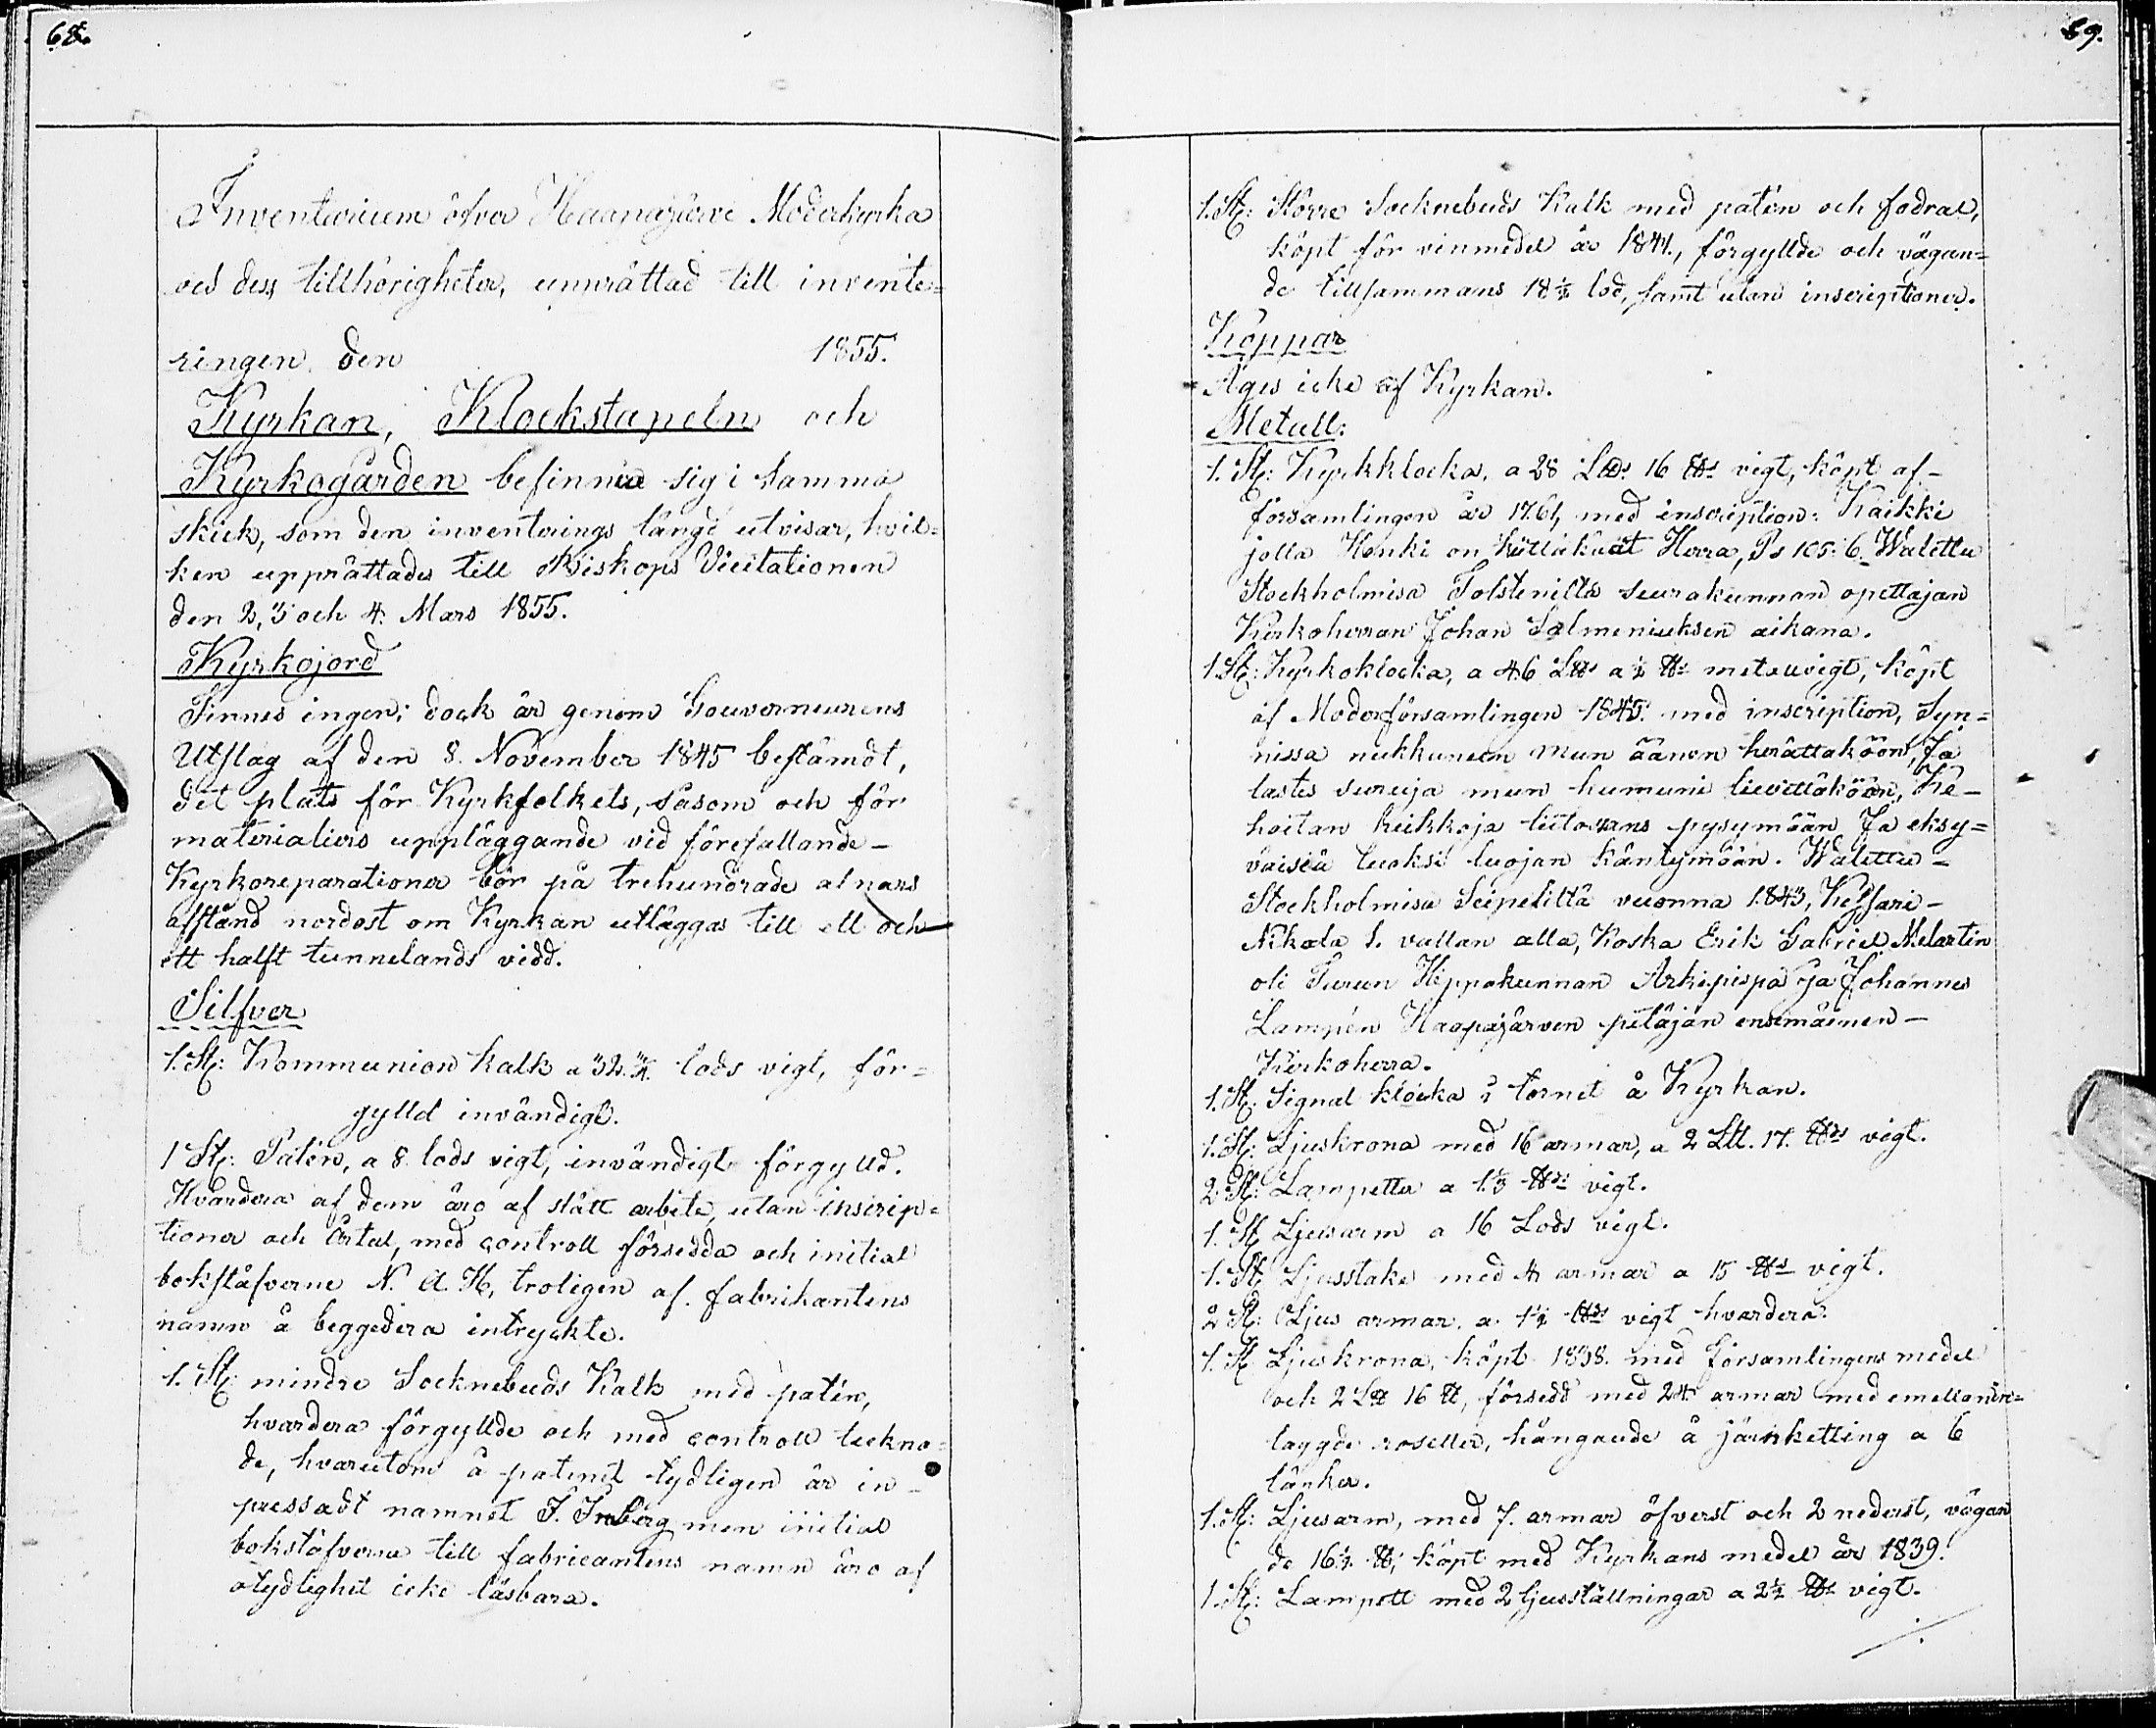 68.
Inventarium öfver Haapajärvi Moderkyrka
och dess tillhörigheter, upprättad till invente-
ringen den 1855.
Kyrkan, Klockstapeln och
Kyrkogården befinna sig i samma
skick, som den inventerings längd utvisar, hvil-
ken upprättades till Biskops Visitationen
den 2, 3 och 4. Mars 1855.
Kyrkojord
Finnes ingen; dock är genom Gouverneurens
Utslag af den 8. November 1845 bestämdt,
det plats för Kyrkfolkets, såsom och för
materialiers uppläggande vid förefallande-
Kyrkoreparationer bör på trehundrade alnars
afstånd nordost om Kyrkan utläggas till ett och
ett halft tunnelands vidd.
Silfver
1. St: Kommunion kalk a 32 3/4. lods vigt, för-
gylld invändigt.
1 St: Patén, a 8 lods vigt, invändigt förgylld.
Hvardera af dem äro af slätt arbete, utan inscrip-
tioner och årtal, med controll försedda och initial
bokstäfverne N. A. H, troligen af fabrikantens
namn å beggedera intryckte.
1. St: mindre Socknebuds Kalk med patén,
hvardera förgyllde och med controll teckna-
de, hvarutom å patenet tydligen är in-
pressadt namnet F. Inberg men initial
bokstäfverna till fabricantens namn äro af
otydlighet icke läsbara.
69.
1. St: Större Socknebuds Kalk med patén och fodral,
köpt för vinmedel år 1841., förgyllde och vägan-
de tillsammans 18 1/2 lod, samt utan inscriptioner.
Koppar
Äges icke af Kyrkan.
Metall:
1. St: Kyrkklocka, a 28 L℔s 16 ℔s vigt, köpt af-
församlingen år 1761, med inscription: Kaikki
jolla Henki on kiittäkäät Herra, Ps 105: 6. Walettu
Stockholmisa Folsteniltä seurakunnan opettajan
Kirkoherran Johan Salmeniuksen aikana.
1. St: Kyrkoklocka, a 46 L℔s a 1/2 ℔s metallvigt, köpt
af Moderförsamlingen 1845. med inscription, Syn-
nissa nukkuneen mun äänen herättäköön, Ja
lastes suruja mun humuni lievittäköön, Ke-
hoitan keikkoja liitossans pysymään Ja eksy-
väisiä luoksi luojan kääntymään. Walettu-
Stockholmisa Seipelitta vuonna 1843, Keisari-
Nikola 1. vallan alla, Koska Erik Gabriel Melartin
oli Turun Hippakunnan Arkipispa ja Johannes
Lampén Haapajärven pitäjän ensimäinen-
Kirkoherra.
1. St: Signal klocka i tornet å Kyrkan.
1. St: Ljuskrona med 16 armar, a 2 L℔. 17. ℔s vigt.
2 St: Lampetter a 1 1/3 ℔s vigt.
1. St: Ljusarm a 16 Lods vigt.
1. St: Ljusstake med 4 armar a 15 ℔s vigt.
2 St: Ljus armar, a 1 1/2 ℔s vigt hvardera.
1. St: Ljuskrona, köpt 1838. med Församlingens medel
och 2 L℔ 16 ℔, försedd med 24 armar med emellanin-
laggde rosetter, hängande å järnketting a 6
länkar.
1. St: Ljusarm, med 7. armar öfverst och 2 nederst, vägan
de 16 1/2 ℔, köpt med Kyrkans medel år 1839.
1. St: Lampett med 2 ljusställningar a 2 1/2 ℔s vigt.